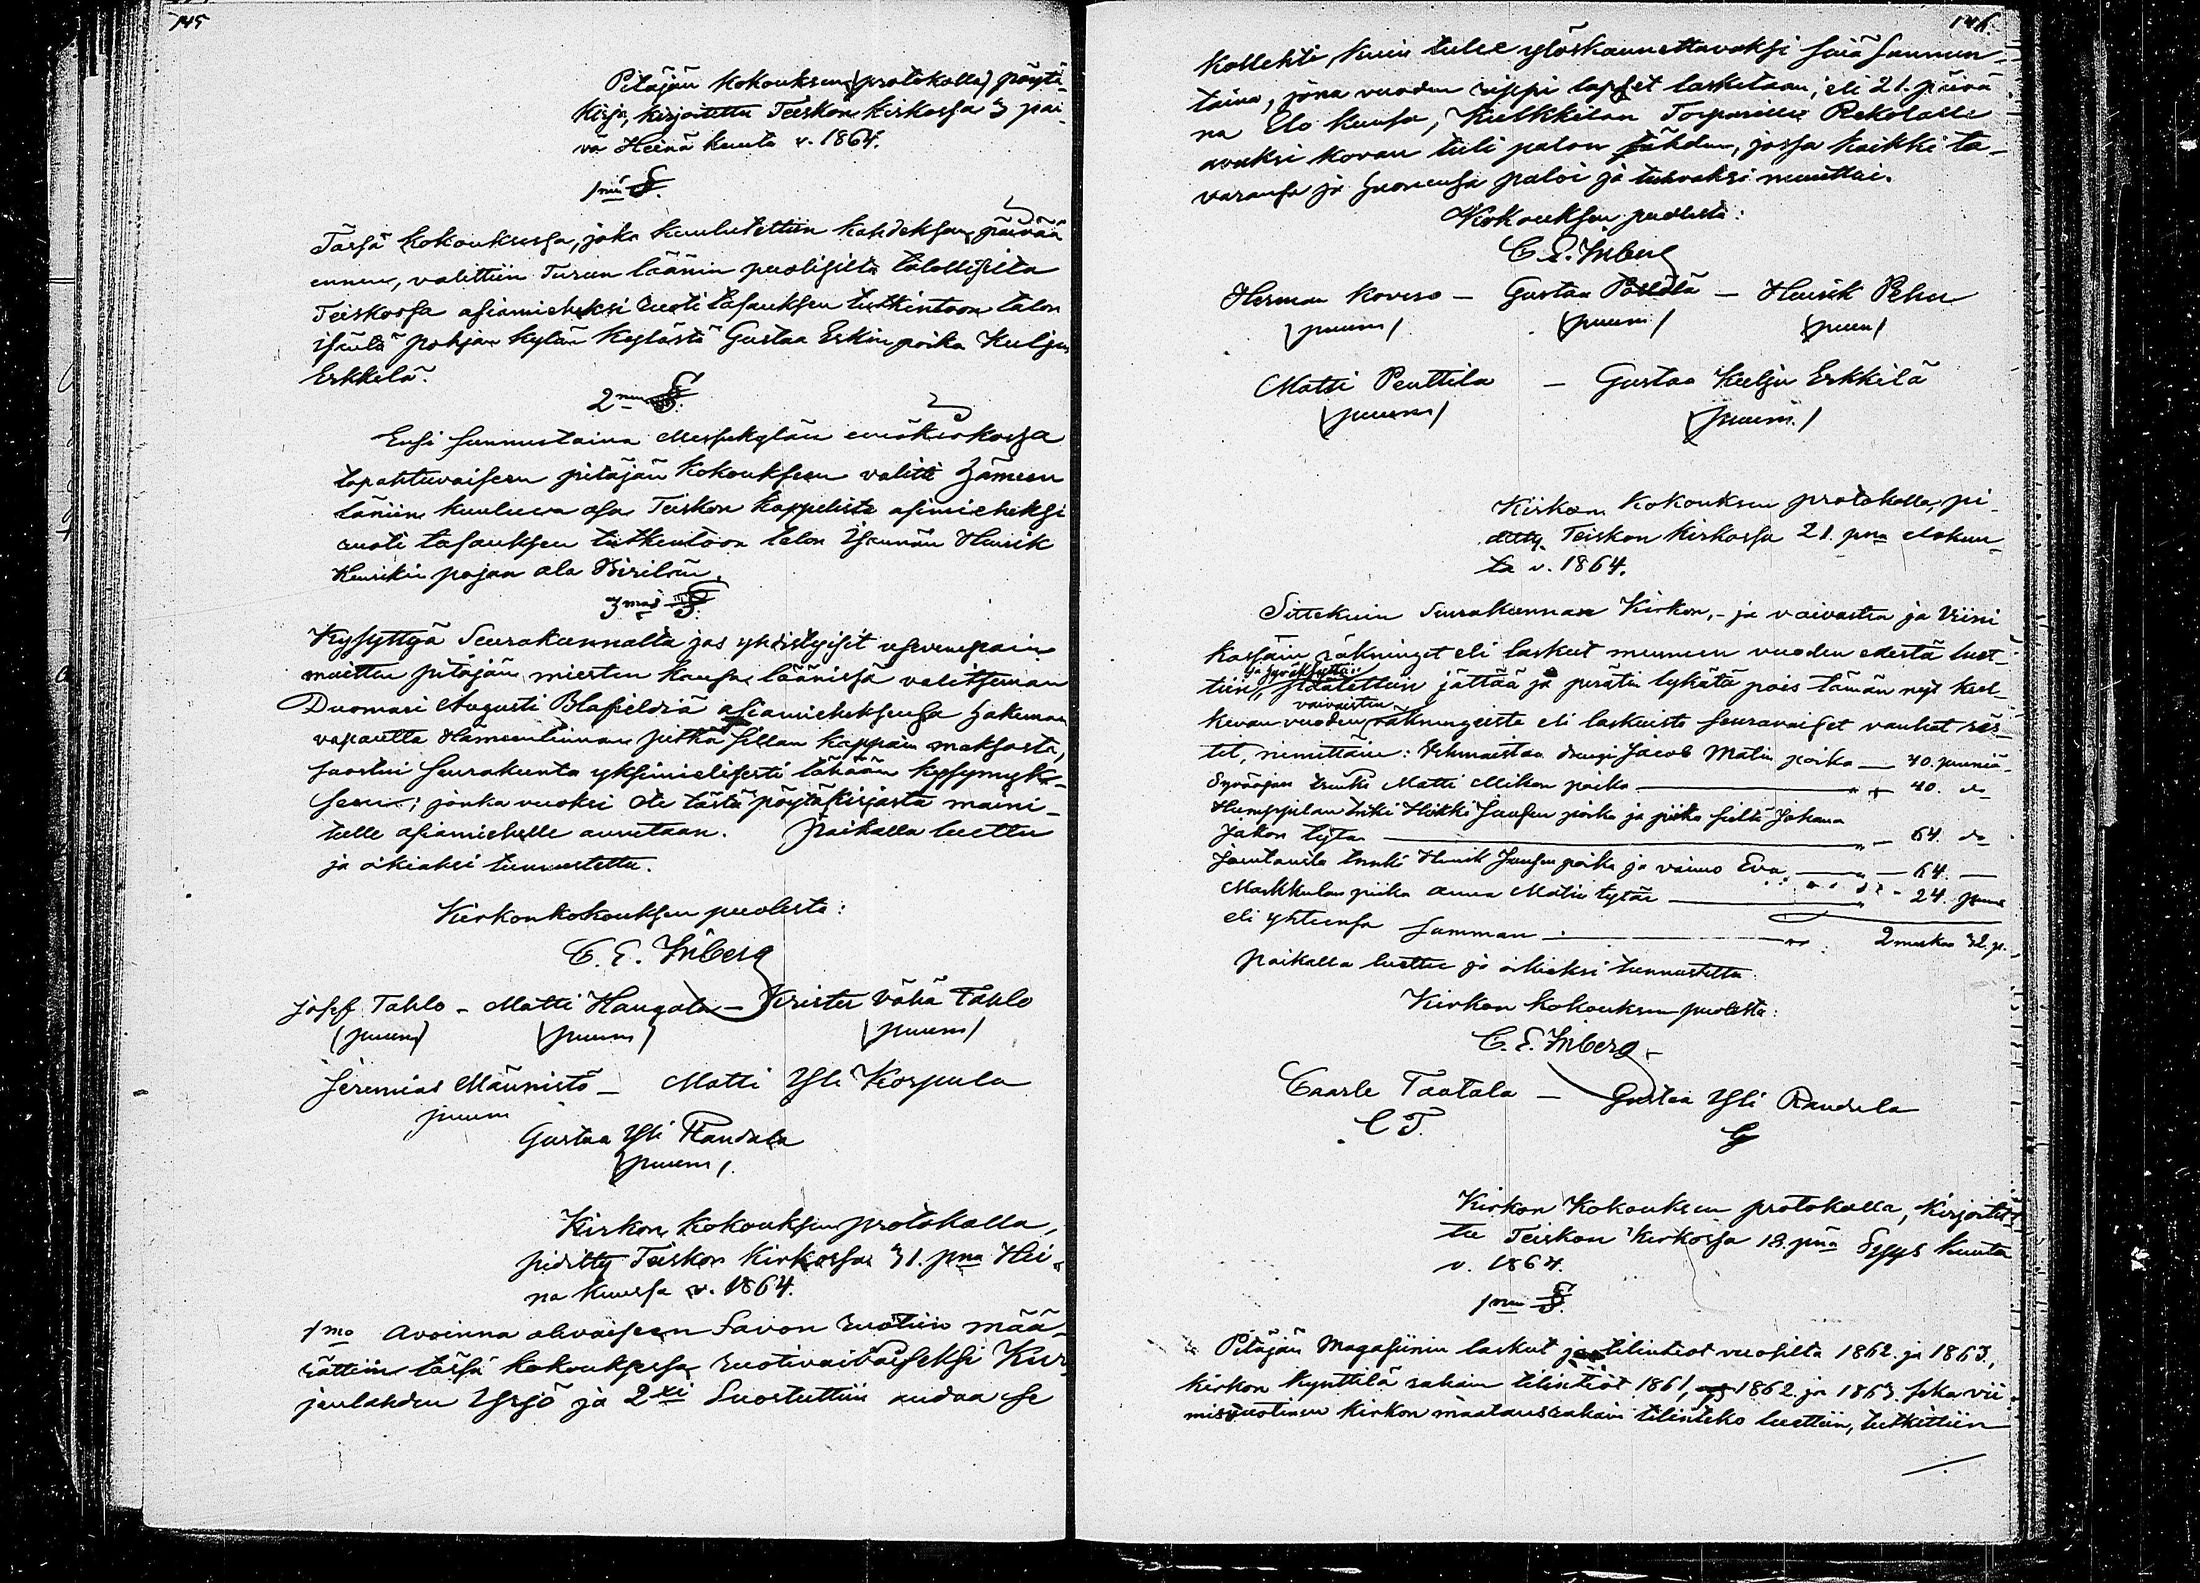 145
Pitäjän Kokouksen (protokolla) pöytä-
kirja, kirjoitettu Teiskon kirkossa 3 päi-
vä Heinä kuuta v. 1864.
1mä §.
Tässä kokouksessa, joka kuulutettiin kahdeksan päivää
ennen, valittiin Turun läänin puolisilta talollisilta
Teiskossa asiamieheksi ruoti tasauksen tutkintoon talon
Isäntä Pohjan kylän Kylästä Gustaa Erkin poika Kulju
Erkkelä.
2nen §.
Ensi sunnuntaina Messukylän emäkirkossa
tapahtuvaiseen pitäjän kokoukseen valitti Hämeen
läniin kuuluva osa Teiskon kappelista asiamieheksi
ruoti tasauksen tutkintoon talon Isännän Henrik
Henrikin pojan ala Pirilän.
3mas §.
Kysyttyä Seurakunnalta jos yhdistyisit useempain
muitten pitäjän miesten kansa läänissä valitseman
Duomari Augusti Blafieldiä asiamieheksensä hakemaan
vapautta Hämeenlinnan pitkän sillan kappain maksosta,
suostui seurakunta yksimielisesti tähään kysymyk-
seen; jonka vuoksi Ote tästä pöytäkirjasta maini-
tulle asiamiehelle annetaan. Paikalla luettu
ja oikiaksi tunnustettu.
Kirkonkokouksen puolesta:
C. E. Inberg
Josef Tahlo - Matti Haugala - Krister Vähä Tahlo
(puum) (puum) (puum)
Jeremias Männistö - Matti Yli Korpula
puum
Gustaa Yli Randala
(puum).
Kirkon kokouksen protokolla,
pidetty Teiskon Kirkossa 31. pnä Hei-
nä kuussa v. 1864.
1mo Avoinna olevaiseen Savon ruotiin mää-
rättiin tässä kokouksessa ruotivaivaiseksi Kur-
jenlahden Yrjö ja 2xi Suostuttiin andaa se
146.
Kollehti, kuin tulee ylöskannettavaksi sinä sunnun-
taina, jona vuoden rippi lapset lasketaan, eli 21. päivä
na Elo kuusa, Kulkkilan Torparille Rekolalle
avuksi kovan tuli palon tähden, jossa kaikki ta-
varansa ja huoneensa paloi ja tuhvaksi muuttui.
Kokouksen puolesta:
C. E. Inberg
Herman Koveso - Gustaa Pällölä - Henrik Pehu
(puum) (puum) (puum)
Matti Penttila - Gustaa Kulju Erkkilä
(puum) (puum.)
Kirkon Kokouksen protokolla, pi-
detty Teiskon Kirkossa 21. pnä elokuu-
ta v. 1864.
Sittekuin Seurakunnan Kirkon,- ja vaivasten ja Viini
kassain räkningit eli laskut menneen vuoden edestä luet-
tiin, ja hyväksyttiin päätettiin jättää ja perätä lykätä pois tämän nyt kul-
kevan vuoden vaivasten räkningeistä eli laskuista seuravaiset vanhat räs-
tit, nimittäin: Vehmaistaa drengi Jacob Matin poika — 40. penniä.
Syväojan trenki Matti Mikon poika — " — 40. do
Humppilan trenki Heikki Juusen poika ja piika sieltä Johana
Jakon tytär — " — 64. do
Jountanila trenki Henrik Juusen poika ja vaimo Eva — " — 64. —
Markkulan piika Anna Matin tytär — " — 24. penn
eli yhteensä Summan — " 2 markaa 32. p.
paikalla luettu ja oikeaksi tunnustettu.
Kirkon kokouksen puolesta:
C. E. Inberg
Caarle Taatala — Gustaa Yli Raudula
C T. G
Kirkon Kokouksen protokolla, kirjoitet-
tu Teiskon Kirkossa 18. pnä Syys kuuta
v. 1864.
1nen §.
Pitäjän Magasiinin laskut ja tilintiot vuosilta 1862. ja 1863.,
kirkon kynttilä rahain tilintiöt 1861, 1862. ja 1863. seka vii-
misvuotinen kirkon maalausrahain tilinteko luettiin, tutkittiin